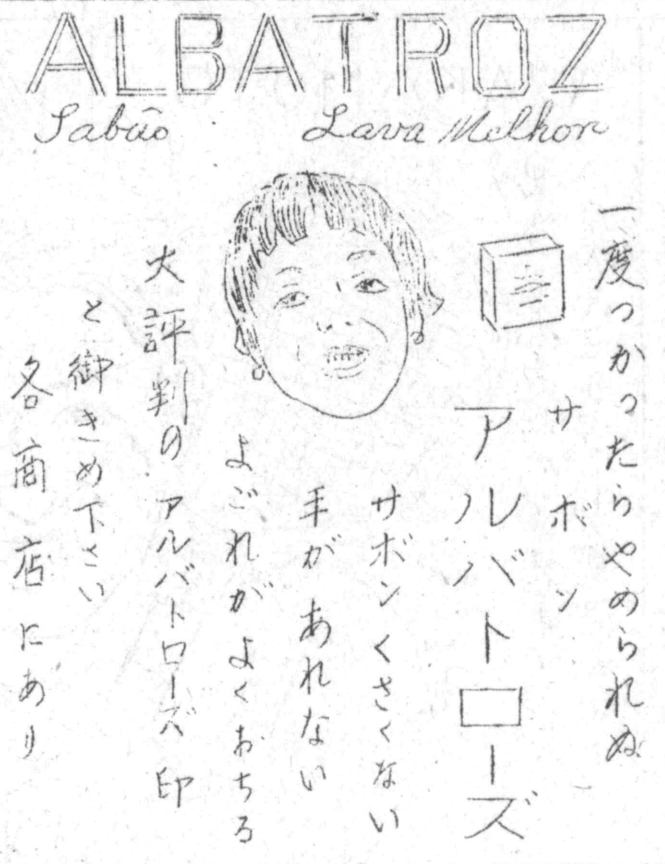 ALBATROZ
Sabão Lava Melhor
一度つかったらやめられぬ
サボン
アルバトローズ
サボンくさくない
手があれない
よごれがよくおちる
大評判のアルバトローズ印
と御きめ下さい
各商店にあり